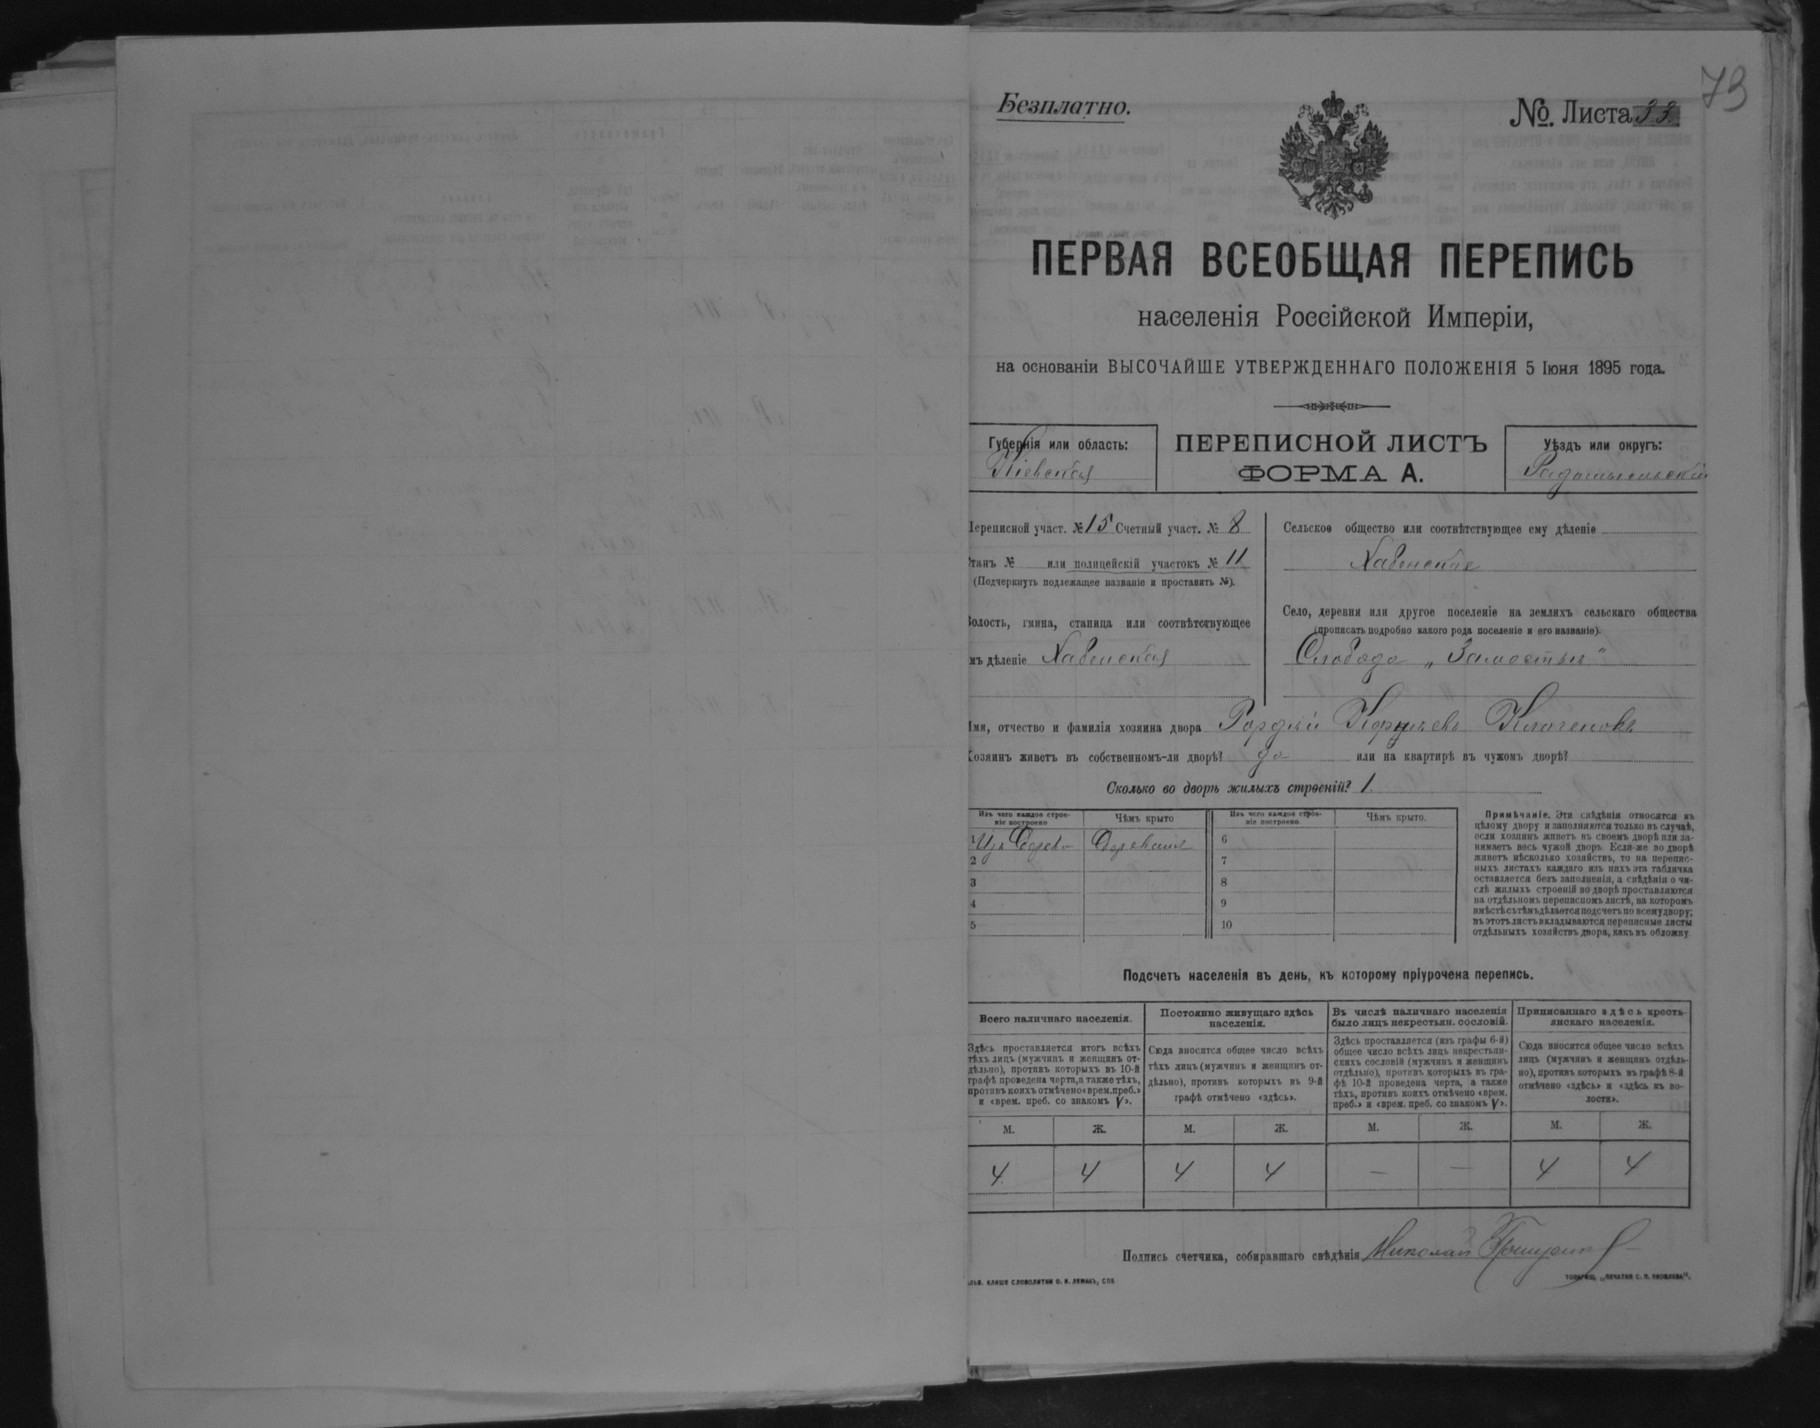 79
Безплатно.
№ Листа 33
ПЕРВАЯ ВСЕОБЩАЯ ПЕРЕПИСЬ
населенія Россійской Имперіи,
на основаніи ВЫСОЧАЙШЕ УТВЕРЖДЕННАГО ПОЛОЖЕНІЯ 5 Іюня 1895 года.
Губернія или область:
Кіевская
ПЕРЕПИСНОЙ ЛИСТЪ
ФОРМА А.
Уѣздъ или округъ:
Радомысльскій
Переписной участ. № 15 Счетный участ. № 8
Станъ № или полицейскій участокъ № 11
(Подчеркнуть подлежащее названіе и проставить №).
Волость, гмина, станица или соотвѣтствующее
имъ дѣленіе Хабенская
Сельское общество или соотвѣтствующее ему дѣленіе
Хабенское
Село, деревня или другое поселеніе на земляхъ сельскаго общества
(прописать подробно какого рода поселеніе и его названіе).
Слобода „Замостье“
Имя, отчество и фамилія хозяина двора Гордѣй
Хозяинъ живетъ въ собственномъ-ли дворѣ? да или на квартирѣ въ чужомъ дворѣ?
Сколько во дворѣ жилыхъ строеній? 1.
Изъ чего каждое строеніе построено
Чѣмъ крыто
Изъ чего каждое строеніе построено.
Чѣмъ крыто.
1 Изъ дерева
2
3
4
5
6
7
8
9
10
Примѣчаніе. Эти свѣдѣнія относятся къ
цѣлому двору и заполняются только въ случаѣ,
если хозяинъ живетъ въ своемъ дворѣ или за-
нимаетъ весь чужой дворъ. Если-же во дворѣ
живетъ нѣсколько хозяйствъ, то на перепис-
ныхъ листахъ каждаго изъ нихъ эта табличка
оставляется безъ заполненія, а свѣдѣнія о чи-
слѣ жилыхъ строеній во дворѣ проставляются
на отдѣльномъ переписномъ листѣ, на которомъ
вмѣстѣ съ тѣмъ дѣлается подсчетъ по всему двору;
въ этотъ листъ вкладываются переписные листы
отдѣльныхъ хозяйствъ двора, какъ въ обложку.
Подсчетъ населенія въ день, къ которому пріурочена перепись.
Всего наличнаго населенія.
Здѣсь проставляется итогъ всѣхъ
тѣхъ лицъ (мужчинъ и женщинъ от-
дѣльно), противъ которыхъ въ 10-й
графѣ проведена черта, а также тѣхъ,
противъ коихъ отмѣчено «врем. преб.»
и «врем. преб. со знакомъ V».
Постоянно живущаго здѣсь
населенія.
Сюда вносится общее число всѣхъ
тѣхъ лицъ (мужчинъ и женщинъ от-
дѣльно), противъ которыхъ въ 9-й
графѣ отмѣчено «здѣсь».
Въ числѣ наличнаго населенія
было лицъ некрестьян. сословій.
Здѣсь проставляется (изъ графы 6-й)
общее число всѣхъ лицъ некрестьян-
скихъ сословій (мужчинъ и женщинъ
отдѣльно), противъ которыхъ въ гра-
фѣ 10-й проведена черта, а также
тѣхъ, противъ коихъ отмѣчено «врем.
преб.» и «врем. преб. со знакомъ V».
Приписаннаго здѣсь кресть-
янскаго населенія.
Сюда вносится общее число всѣхъ
лицъ (мужчинъ и женщинъ отдѣль-
но), противъ которыхъ въ графѣ 8-й
отмѣчено «здѣсь» и «здѣсь въ во-
лости».
М. Ж. М. Ж. М. Ж. М. Ж.
4 4 4 4 — — 4 4
Подпись счетчика, собиравшаго свѣдѣнія Николай
КЛИШЕ СЛОВОЛИТНИ О. И. ЛЕМАНЪ, СПБ
ТОВАРИЩ. „ПЕЧАТНЯ С. П. ЯКОВЛЕВА“.